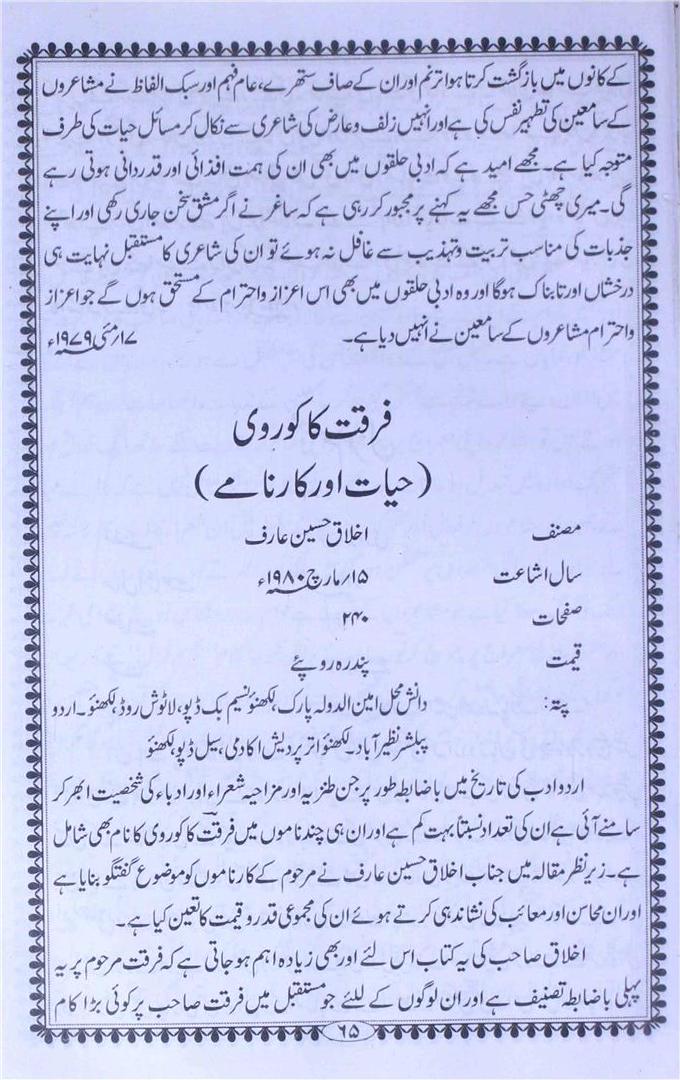 کے کانوں میں بازگشت کرتا ہوا ترنم اور ان کے صاف ستھرے، عام فہم اور سبک الفاظ نے مشاعروں
کے سامعین کی تطہیر نفس کی ہے اور انہیں زلف و عارض کی شاعری سے نکال کر مسائل حیات کی طرف
متوجہ کیا ہے۔ مجھے امید ہے کہ ادبی حلقوں میں بھی ان کی ہمت افزائی اور قدردانی ہوتی رہے
گی۔ میری چھٹی حس مجھے یہ کہنے پر مجبور کر رہی ہے کہ ساغر نے اگر مشق سخن جاری رکھی اور اپنے
جذبات کی مناسب تربیت و تہذیب سے غافل نہ ہوئے تو ان کی شاعری کا مستقبل نہایت ہی
درخشاں اور تابناک ہوگا اور وہ ادبی حلقوں میں بھی اس اعزاز و احترام کے مستحق ہوں گے جو اعزاز
و احترام مشاعروں کے سامعین نے انہیں دیا ہے۔ ۱۷/مئی ۱۹۷۹ء
فرقت کاکوروی
(حیات اور کارنامے)
مصنف اخلاق حسین عارف
سال اشاعت ۱۵/مارچ ۱۹۸۰ء
صفحات ۲۴۰
قیمت پندرہ روپئے
پتہ دانش محل امین الدولہ پارک، لکھنؤ نسیم بک ڈپو، لاٹوش روڈ، لکھنؤ۔ اردو
پبلشر نظیر آباد۔ لکھنؤ اتر پردیش اکادمی، سیل ڈپو، لکھنؤ
اردو ادب کی تاریخ میں باضابطہ طور پر جن طنزیہ اور مزاحیہ شعراء اور ادباء کی شخصیت ابھر کر
سامنے آئی ہے ان کی تعداد نسبتاً بہت کم ہے اور ان ہی چند ناموں میں فرقتؔ کاکوروی کا نام بھی شامل
ہے۔ زیر نظر مقالہ میں جناب اخلاق حسین عارف نے مرحوم کے کارناموں کو موضوع گفتگو بنایا ہے
اور ان محاسن اور معائب کی نشاندہی کرتے ہوئے ان کی مجموعی قدر و قیمت کا تعین کیا ہے۔
اخلاق صاحب کی یہ کتاب اس لئے اور بھی زیادہ اہم ہو جاتی ہے کہ فرقت مرحوم پر یہ
پہلی باضابطہ تصنیف ہے اور ان لوگوں کے للئے جو مستقبل میں فرقت صاحب پر کوئی بڑا کام
۶۵